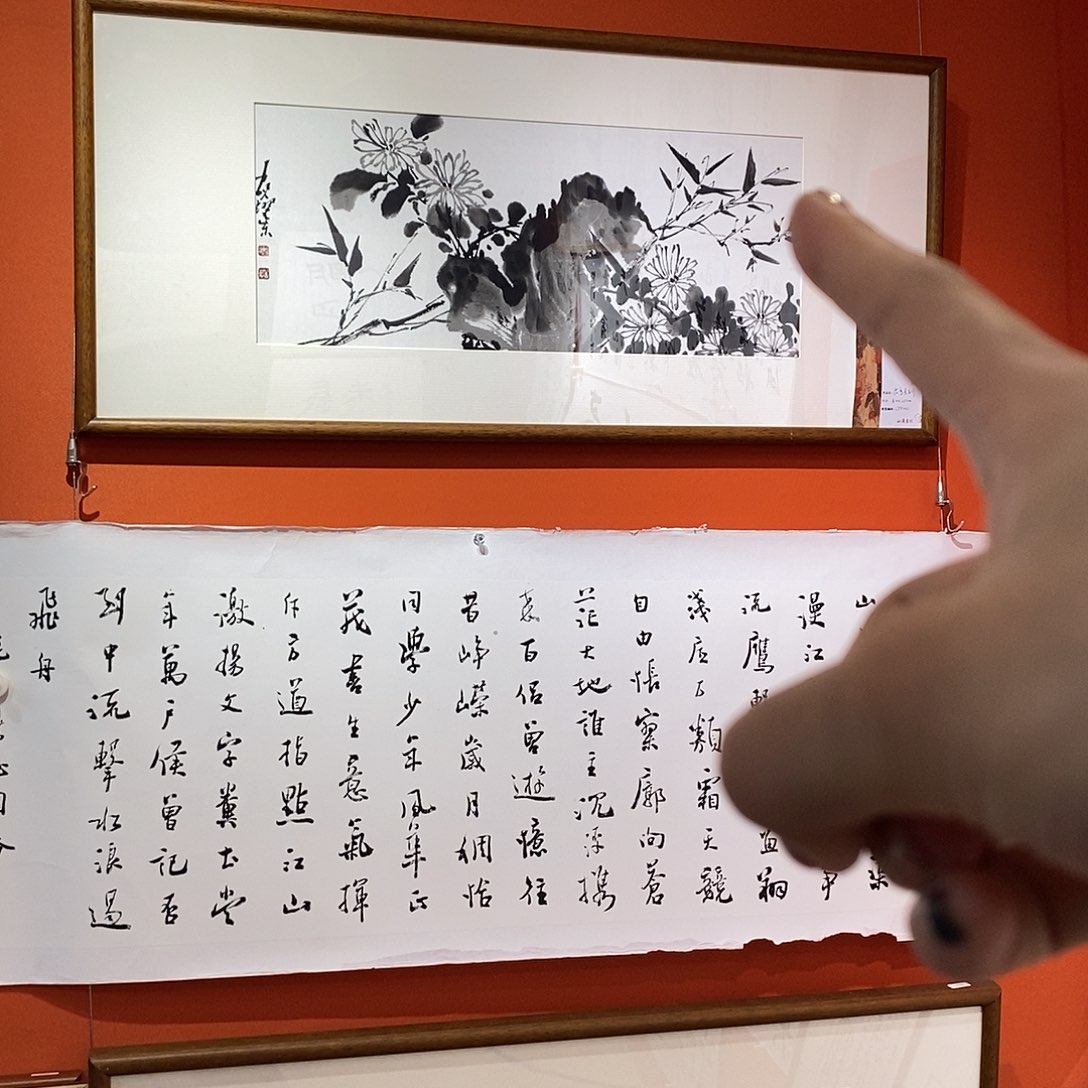 山
漫江 争
流鷹擊 翔
淺底万類霜天競
自由悵寥廓向蒼
茫大地誰主沉浮攜
来百侣曾遊憶往
昔崢嶸歲月稠恰
同學少年風華正
茂書生意氣揮
斥方遒指點江山
激揚文字糞土當
年萬户侯曾記否
到中流擊水浪遏
飛舟